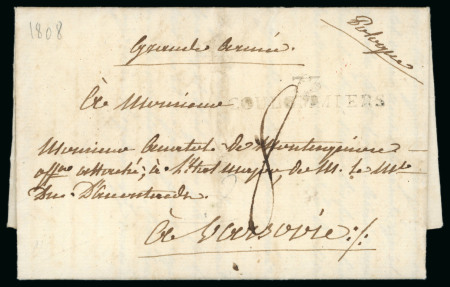 1808
Pologne
Grande Armée.
À Monsieur
77
COULOMMIERS
Monsieur de
offer attaché, à l'Etat major de M. le Mal
Duc D'Auerstaedt.
8
À Varsovie